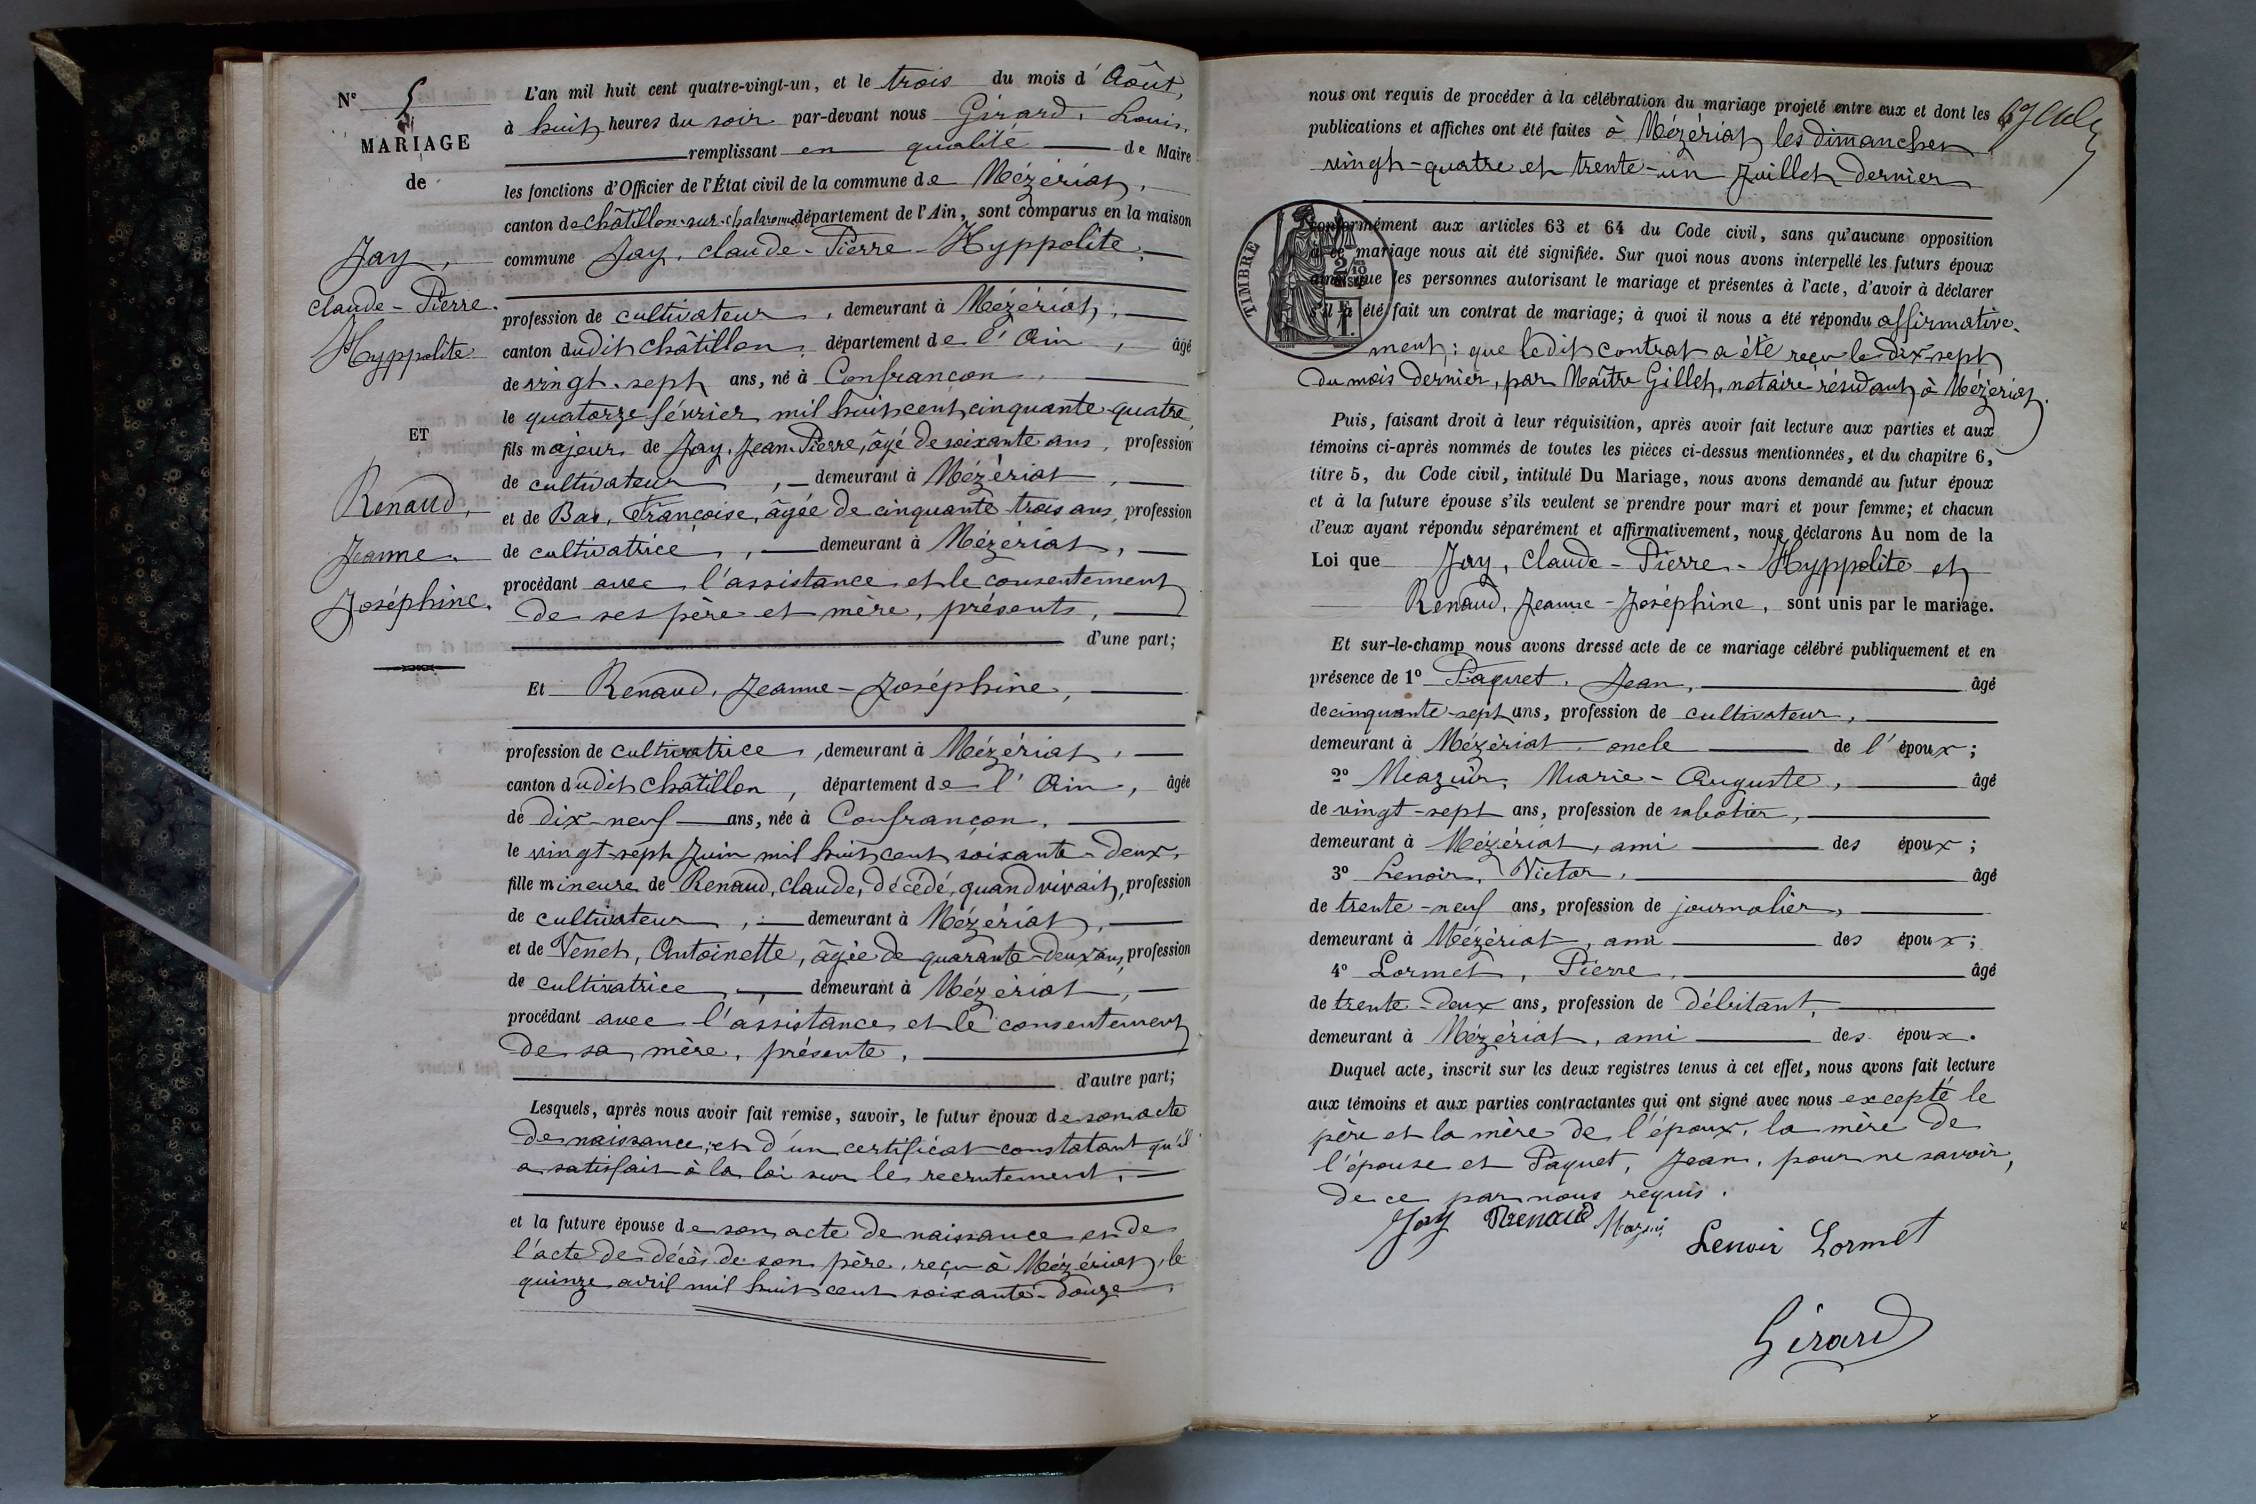 N° 5
MARIAGE
de
Jay,
Claude-Pierre
Hyppolite
ET
Renaud,
Jeanne
Joséphine.
L'an mil huit cent quatre-vingt-un, et le trois du mois d'Août,
à huit heures du soir par-devant nous Girard, Louis,
remplissant en qualité de Maire
les fonctions d'Officier de l'État civil de la commune de Mézériat,
canton de Châtillon-sur-Chalaronne département de l'Ain, sont comparus en la maison
commune Jay, Claude-Pierre-Hyppolite,
profession de cultivateur, demeurant à Mézériat,
canton dudit Châtillon, département de l'Ain, âgé
de vingt-sept ans, né à Confrançon,
le quatorze février mil huit cent cinquante-quatre
fils majeur de Jay, Jean-Pierre, âgé de soixante ans, profession
de cultivateur, demeurant à Mézériat,
et de Bas, Françoise, âgée de cinquante trois ans, profession
de cultivatrice, demeurant à Mézériat,
procédant avec l'assistance et le consentement
de ses père et mère, présents,
d'une part;
Et Renaud, Jeanne-Joséphine,
profession de cultivatrice, demeurant à Mézériat,
canton dudit Châtillon, département de l'Ain, âgée
de dix-neuf ans, née à Confrançon,
le vingt-sept Juin mil huit cent soixante-deux,
fille mineure de Renaud, Claude, décédé, quand vivait, profession
de cultivateur, demeurant à Mézériat,
et de Venet, Antoinette, âgée de quarante-deux ans, profession
de cultivatrice, demeurant à Mézériat,
procédant avec l'assistance et le consentement
de sa mère, présente,
d'autre part;
Lesquels, après nous avoir fait remise, savoir, le futur époux de son acte
de naissance; et d'un certificat constatant qu'il
a satisfait à la loi sur le recrutement,
et la future épouse de son acte de naissance et de
l'acte de décès de son père, reçu à Mézériat, le
quinze avril mil huit cent soixante-douze,
nous ont requis de procéder à la célébration du mariage projeté entre eux et dont les
publications et affiches ont été faites à Mézériat les dimanches
vingt-quatre et trente-un Juillet dernier
TIMBRE
conformément aux articles 63 et 64 du Code civil, sans qu'aucune opposition
à ce mariage nous ait été signifiée. Sur quoi nous avons interpellé les futurs époux
ainsi que les personnes autorisant le mariage et présentes à l'acte, d'avoir à déclarer
s'il a été fait un contrat de mariage; à quoi il nous a été répondu affirmative-
ment; que ledit contrat a été reçu le dix-sept
du mois dernier, par Maître Gillet, notaire résidant à Mézériat.
Puis, faisant droit à leur réquisition, après avoir fait lecture aux parties et aux
témoins ci-après nommés de toutes les pièces ci-dessus mentionnées, et du chapitre 6,
titre 5, du Code civil, intitulé Du Mariage, nous avons demandé au futur époux
et à la future épouse s'ils veulent se prendre pour mari et pour femme; et chacun
d'eux ayant répondu séparément et affirmativement, nous déclarons Au nom de la
Loi que Jay, Claude-Pierre-Hyppolite et
Renaud, Jeanne-Joséphine, sont unis par le mariage.
Et sur-le-champ nous avons dressé acte de ce mariage célébré publiquement et en
présence de 1° Paquet, Jean, âgé
de cinquante-sept ans, profession de cultivateur,
demeurant à Mézériat oncle de l'époux;
2° Mazuir, Marie-Auguste, âgé
de vingt-sept ans, profession de sabotier,
demeurant à Mézériat, ami des époux;
3° Lenoir, Victor, âgé
de trente-neuf ans, profession de journalier,
demeurant à Mézériat, ami des époux;
4° Lormet, Pierre, âgé
de trente-deux ans, profession de débitant,
demeurant à Mézériat, ami des époux.
Duquel acte, inscrit sur les deux registres tenus à cet effet, nous avons fait lecture
aux témoins et aux parties contractantes qui ont signé avec nous excepté le
père et la mère de l'époux, la mère de
l'épouse et Paquet, Jean, pour ne savoir,
de ce par nous requis.
Jay Renaud
Lenoir Lormet
Girard